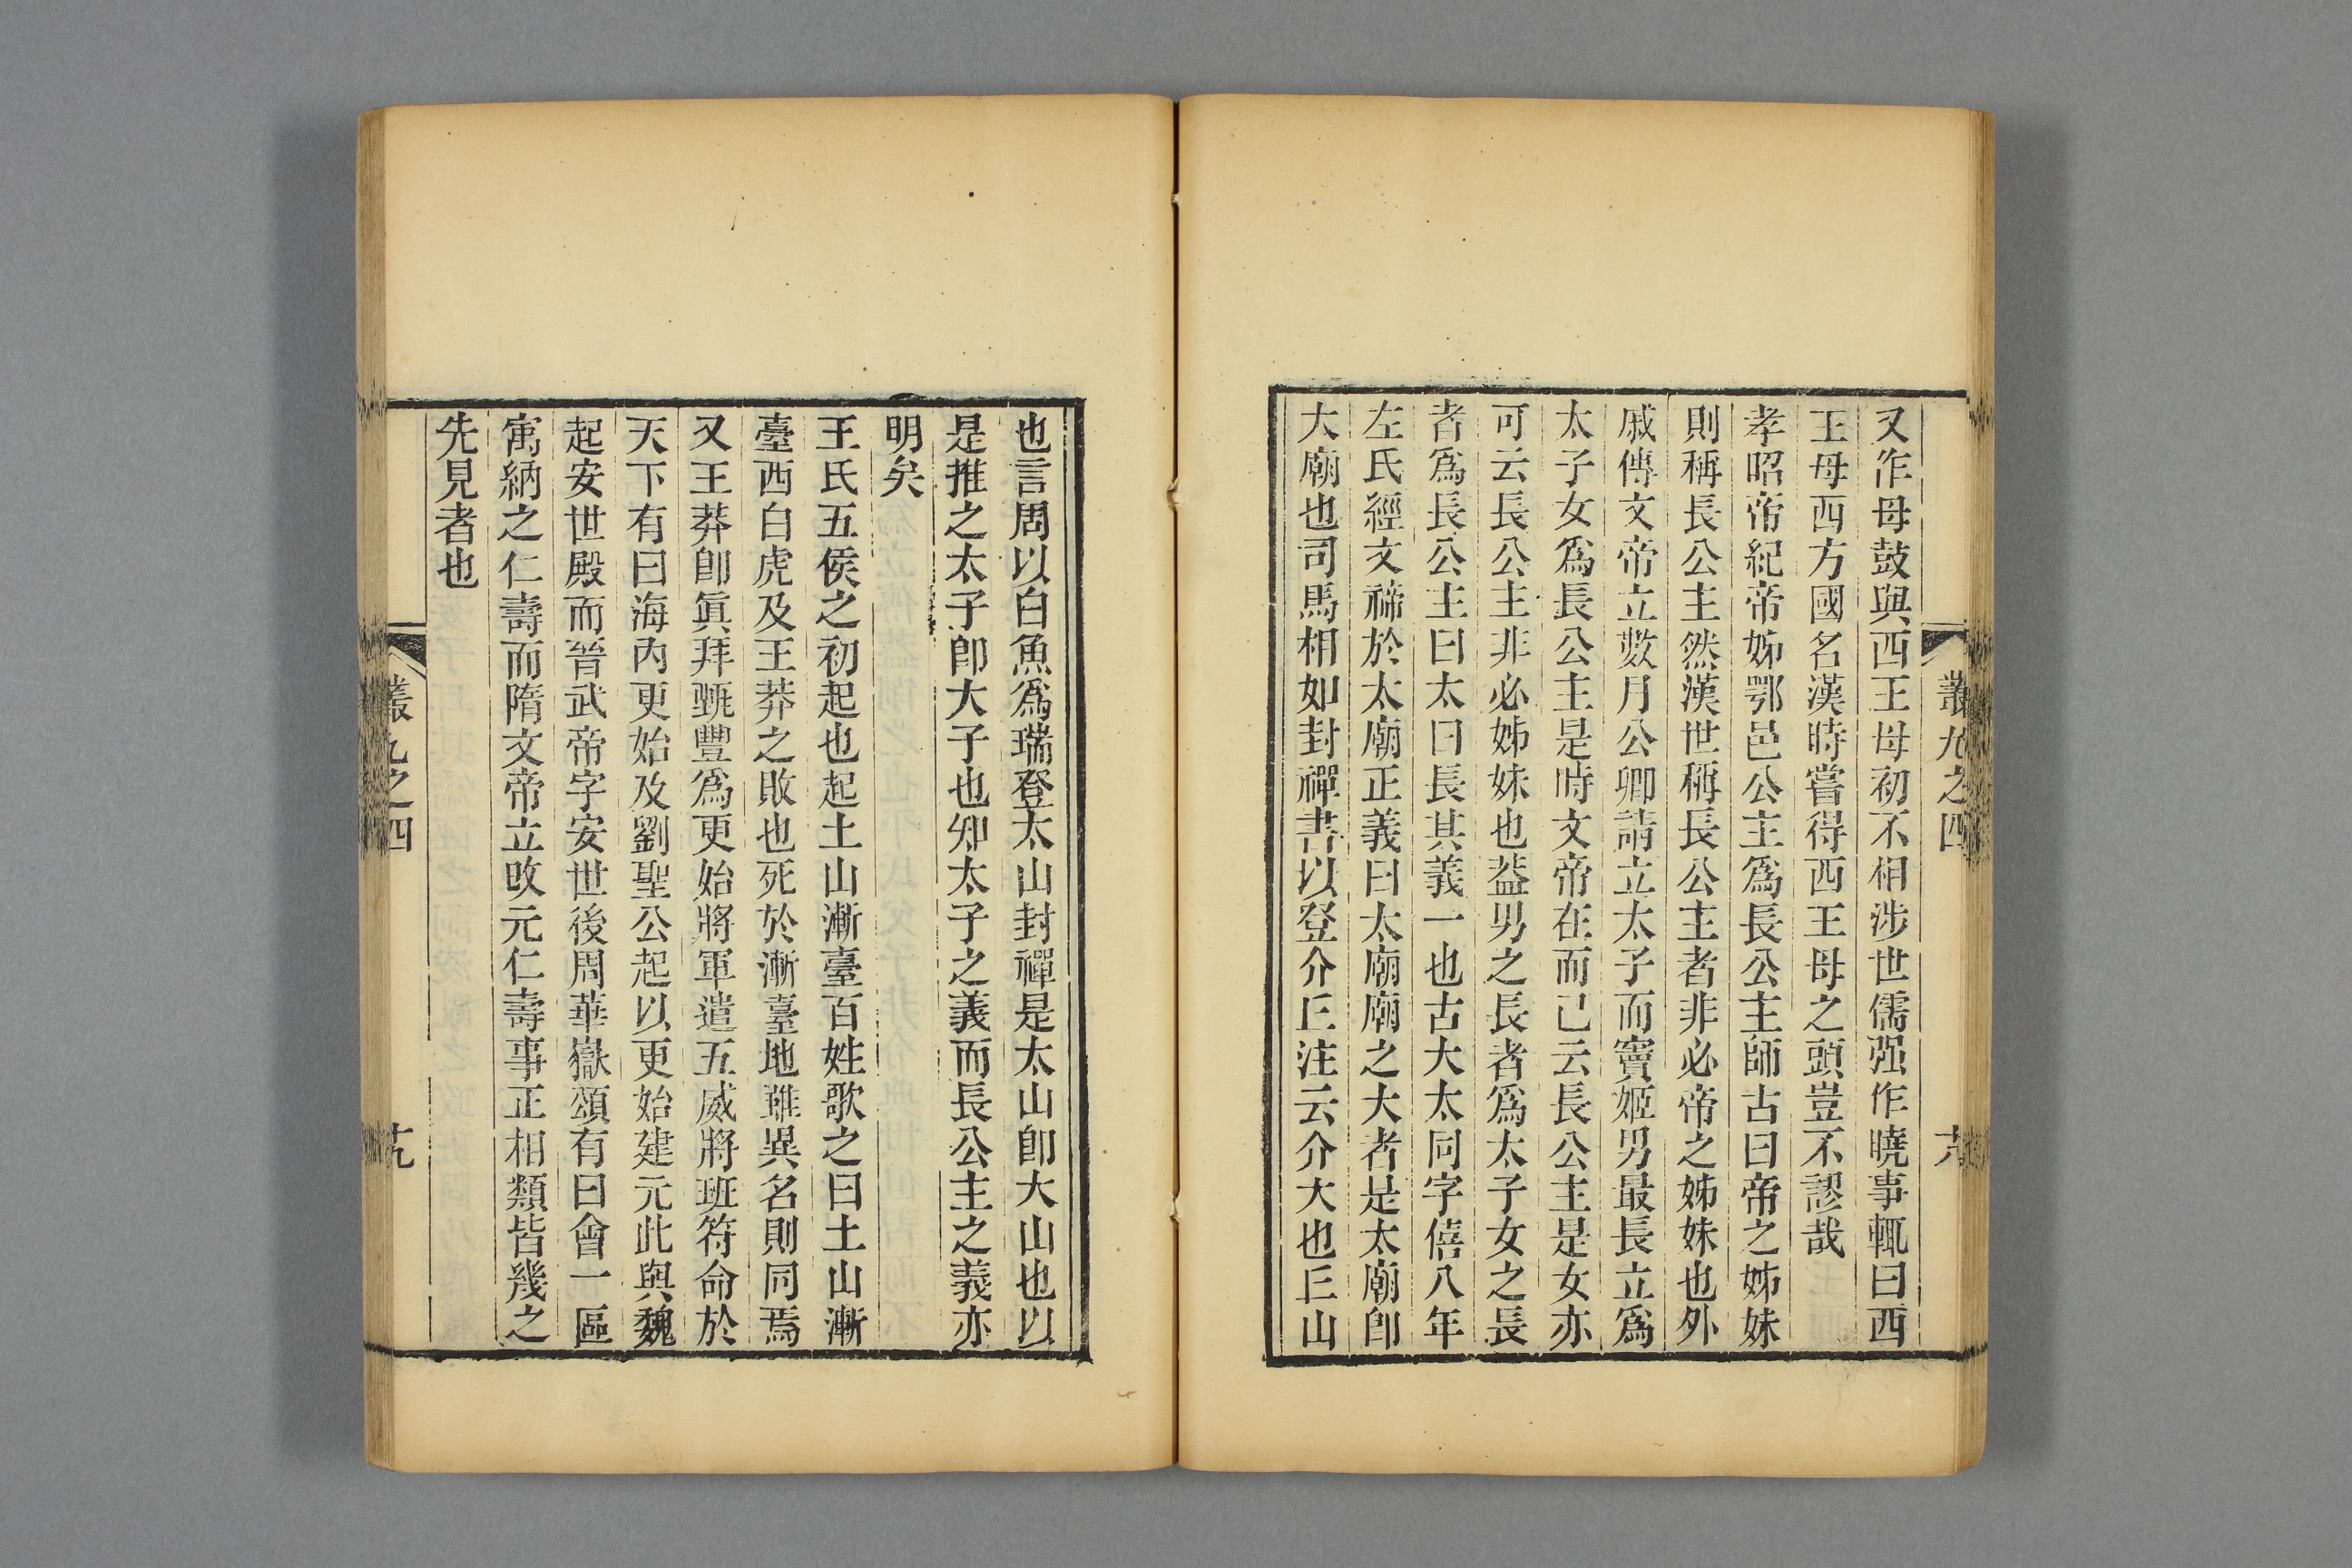 叢九之四
六
又作母鼓與西王母初不相涉世儒强作曉事輒曰西
王母西方國名漢時嘗得西王母之頭豈不謬哉
孝昭帝紀帝姊鄂邑公主爲長公主師古曰帝之姊妹
則稱長公主然漢世稱長公主者非必帝之姊妹也外
戚傳文帝立數月公卿請立太子而竇姬男最長立爲
太子女爲長公主是時文帝在而已云長公主是女亦
可云長公主非必姊妹也葢男之長者爲太子女之長
者爲長公主曰太曰長其義一也古大太同字僖八年
左氏經文禘於太廟正義曰太廟廟之大者是太廟卽
大廟也司馬相如封禪書以登介丘注云介大也丘山
也言周以白魚爲瑞登太山封禪是太山卽大山也以
是推之太子卽大子也知太子之義而長公主之義亦
明矣
王氏五侯之初起也起土山漸臺百姓歌之曰土山漸
臺西白虎及王莽之敗也死於漸臺地雖異名則同焉
又王莽卽眞拜甄豐爲更始將軍遣五威將班符命於
天下有曰海內更始及劉聖公起以更始建元此與魏
起安世殿而晉武帝字安世後周華嶽頌有曰會一區
寓納之仁壽而隋文帝立改元仁壽事正相類皆幾之
先見者也
叢九之四